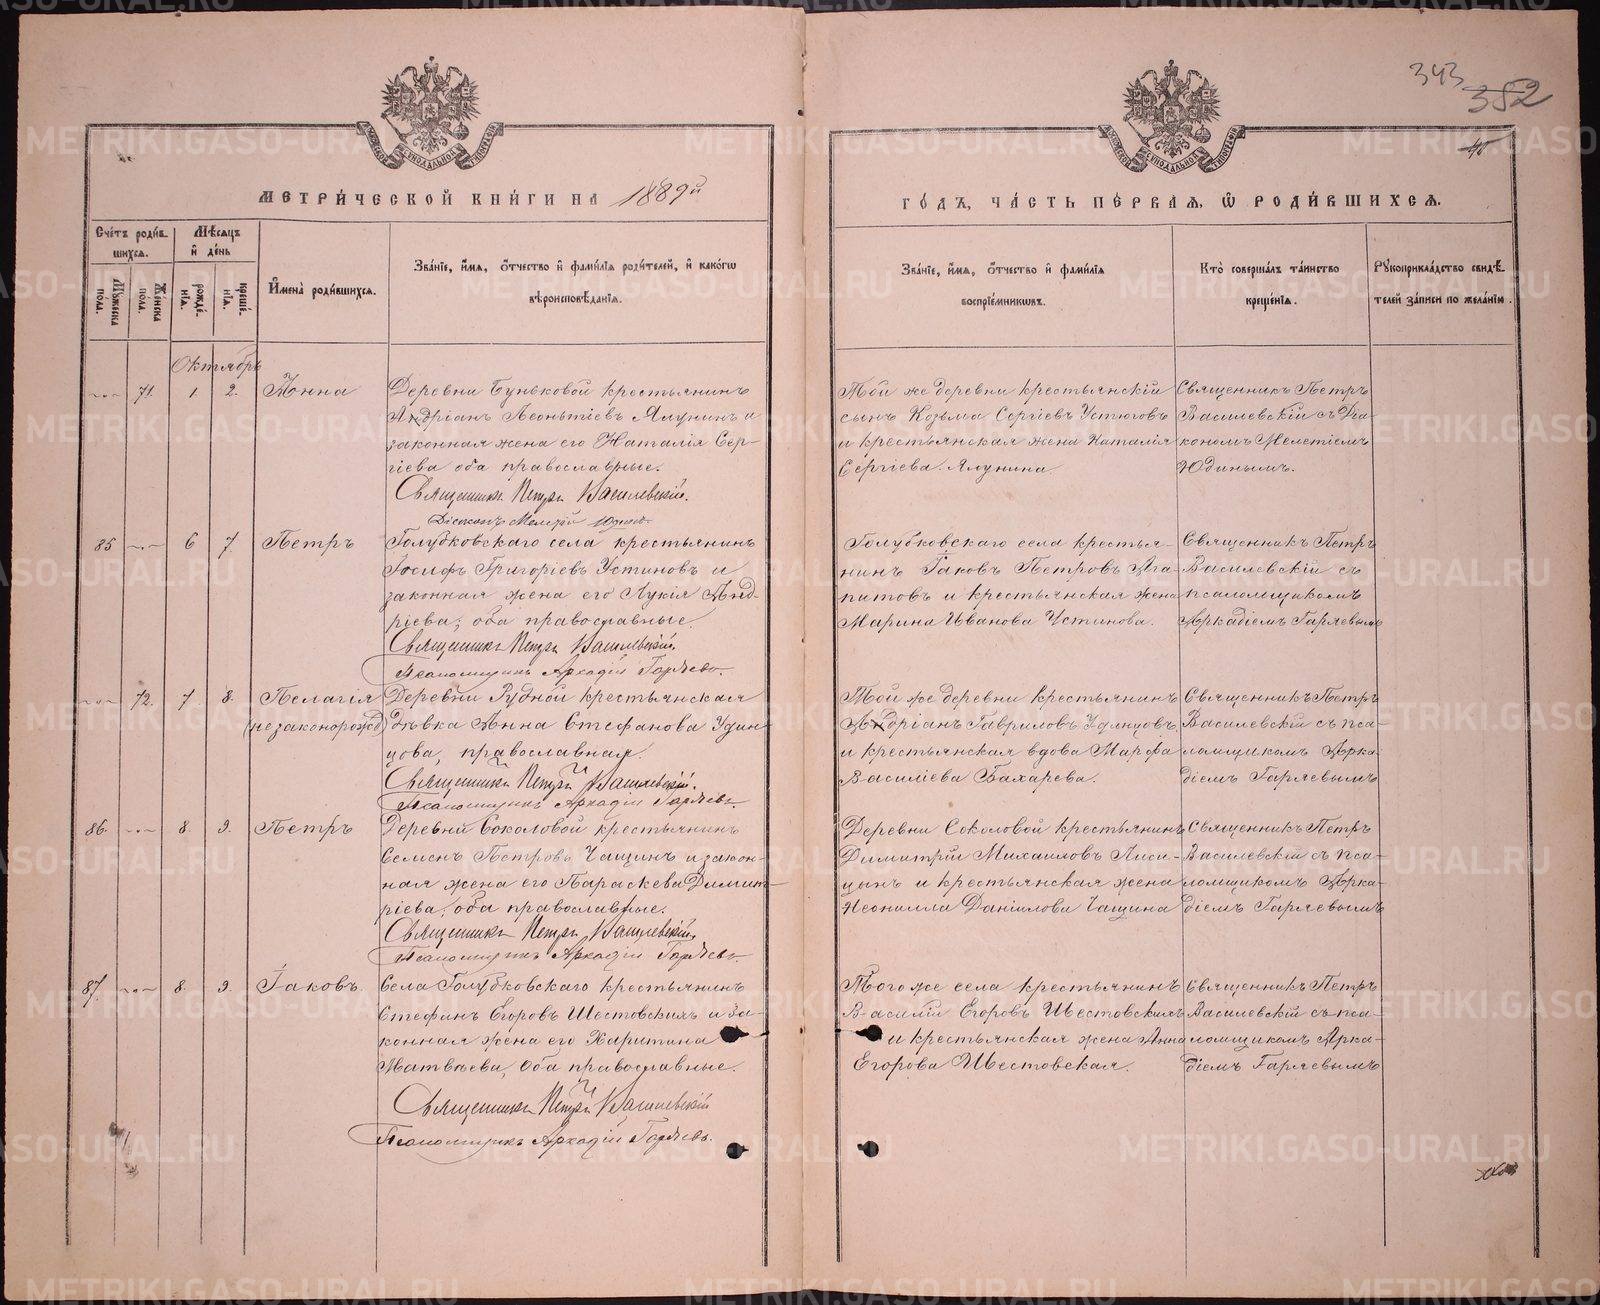 343
352
МЕТРИ́ЧЕСКОЙ КНИ́ГИ НА 1889й
ГО́ДЪ, ЧА́СТЬ ПЕ́РВАЯ, Ѽ РОДИ́ВШИХСЯ.
Сче́тъ роди́в-
шихся.
Мѣ́сяцъ
и҆ де́нь
И҆мена̀ роди́вшихся.
Зва́нїе, и҆́мя, ѻ҆́тчество и҆ фами́лїя роди́телей, и҆ како́гѡ
вѣроисповѣ́данїя.
Зва́нїе, и҆́мя, ѻ҆́тчество и҆ фами́лїя
воспрїе́мникѡвъ.
Кто̀ соверша́лъ та́инство
креще́нїя.
Рꙋкоприкла́дство свидѣ́-
телей за́писи по жела́нїю.
Мꙋ́жеска
пола.
Же́нска
пола.
рожде́-
нїя.
креще́-
нїя.
Октябрь
71. 1. 2. Анна
Деревни Буньковой крестьянинъ
Адріанъ Леонтіевъ Ялунинъ и
законная жена его Наталія Сер-
гіева оба православные.
Священникъ Петръ Василевскій.
Діаконъ Мелетій Юдинъ.
Той же деревни крестьянскій
сынъ Козьма Сергіевъ Устюговъ
и крестьянская жена Наталія
Сергіева Ялунина
Священникъ Петръ
Василевскій съ Діа-
кономъ Мелетіемъ
Юдинымъ.
85 6 7. Петръ
Голубковскаго села крестьянинъ
Іосифъ Григоріевъ Устиновъ и
законная жена его Лукія Анд-
ріева, оба православные.
Священникъ Петръ Василевскій.
Псаломщикъ Аркадій Гаряевъ.
Голубковскаго села крестья-
нинъ Іаковъ Петровъ Ага-
питовъ и крестьянская жена
Марина Иванова Устинова.
Священникъ Петръ
Василевскій съ
псаломщикомъ
Аркадіемъ Гаряевымъ
72. 7. 8. Пелагія
(незаконорожд)
Деревни Рудной крестьянская
дѣвка Анна Стефанова Удин-
цова, православная.
Священникъ Петръ Василевскій.
Псаломщикъ Аркадій Гаряевъ.
Той же деревни крестьянинъ
Адріанъ Гавриловъ Удинцовъ
и крестьянская вдова Марфа
Василіева Бахарева.
Священникъ Петръ
Василевскій съ пса-
ломщикомъ Арка-
діемъ Гаряевымъ
86. 8. 9. Петръ
Деревни Соколовой крестьянинъ
Семенъ Петровъ Чащинъ и закон-
ная жена его Параскева Димит-
ріева, оба православные.
Священникъ Петръ Василевскій.
Псаломщикъ Аркадій Гаряевъ.
Деревни Соколовой крестьянинъ
Димитрій Михаиловъ Лиси-
цынъ и крестьянская жена
Неонилла Даніилова Чащина
Священникъ Петръ
Василевскій съ пса-
ломщикомъ Арка-
діемъ Гаряевымъ
87. 8. 9. Іаковъ.
Села Голубковскаго крестьянинъ
Стефанъ Егоровъ Шестовскихъ и за-
конная жена его Харитина
Матвѣева, оба православные.
Священникъ Петръ Василевскій
Псаломщикъ Аркадій Гаряевъ.
Того же села крестьянинъ
Василій Егоровъ Шестовскихъ
и крестьянская жена Анна
Егорова Шестовская.
Священникъ Петръ
Василевскій съ пса-
ломщикомъ Арка-
діемъ Гаряевымъ
METRIKI.GASO-URAL.RU